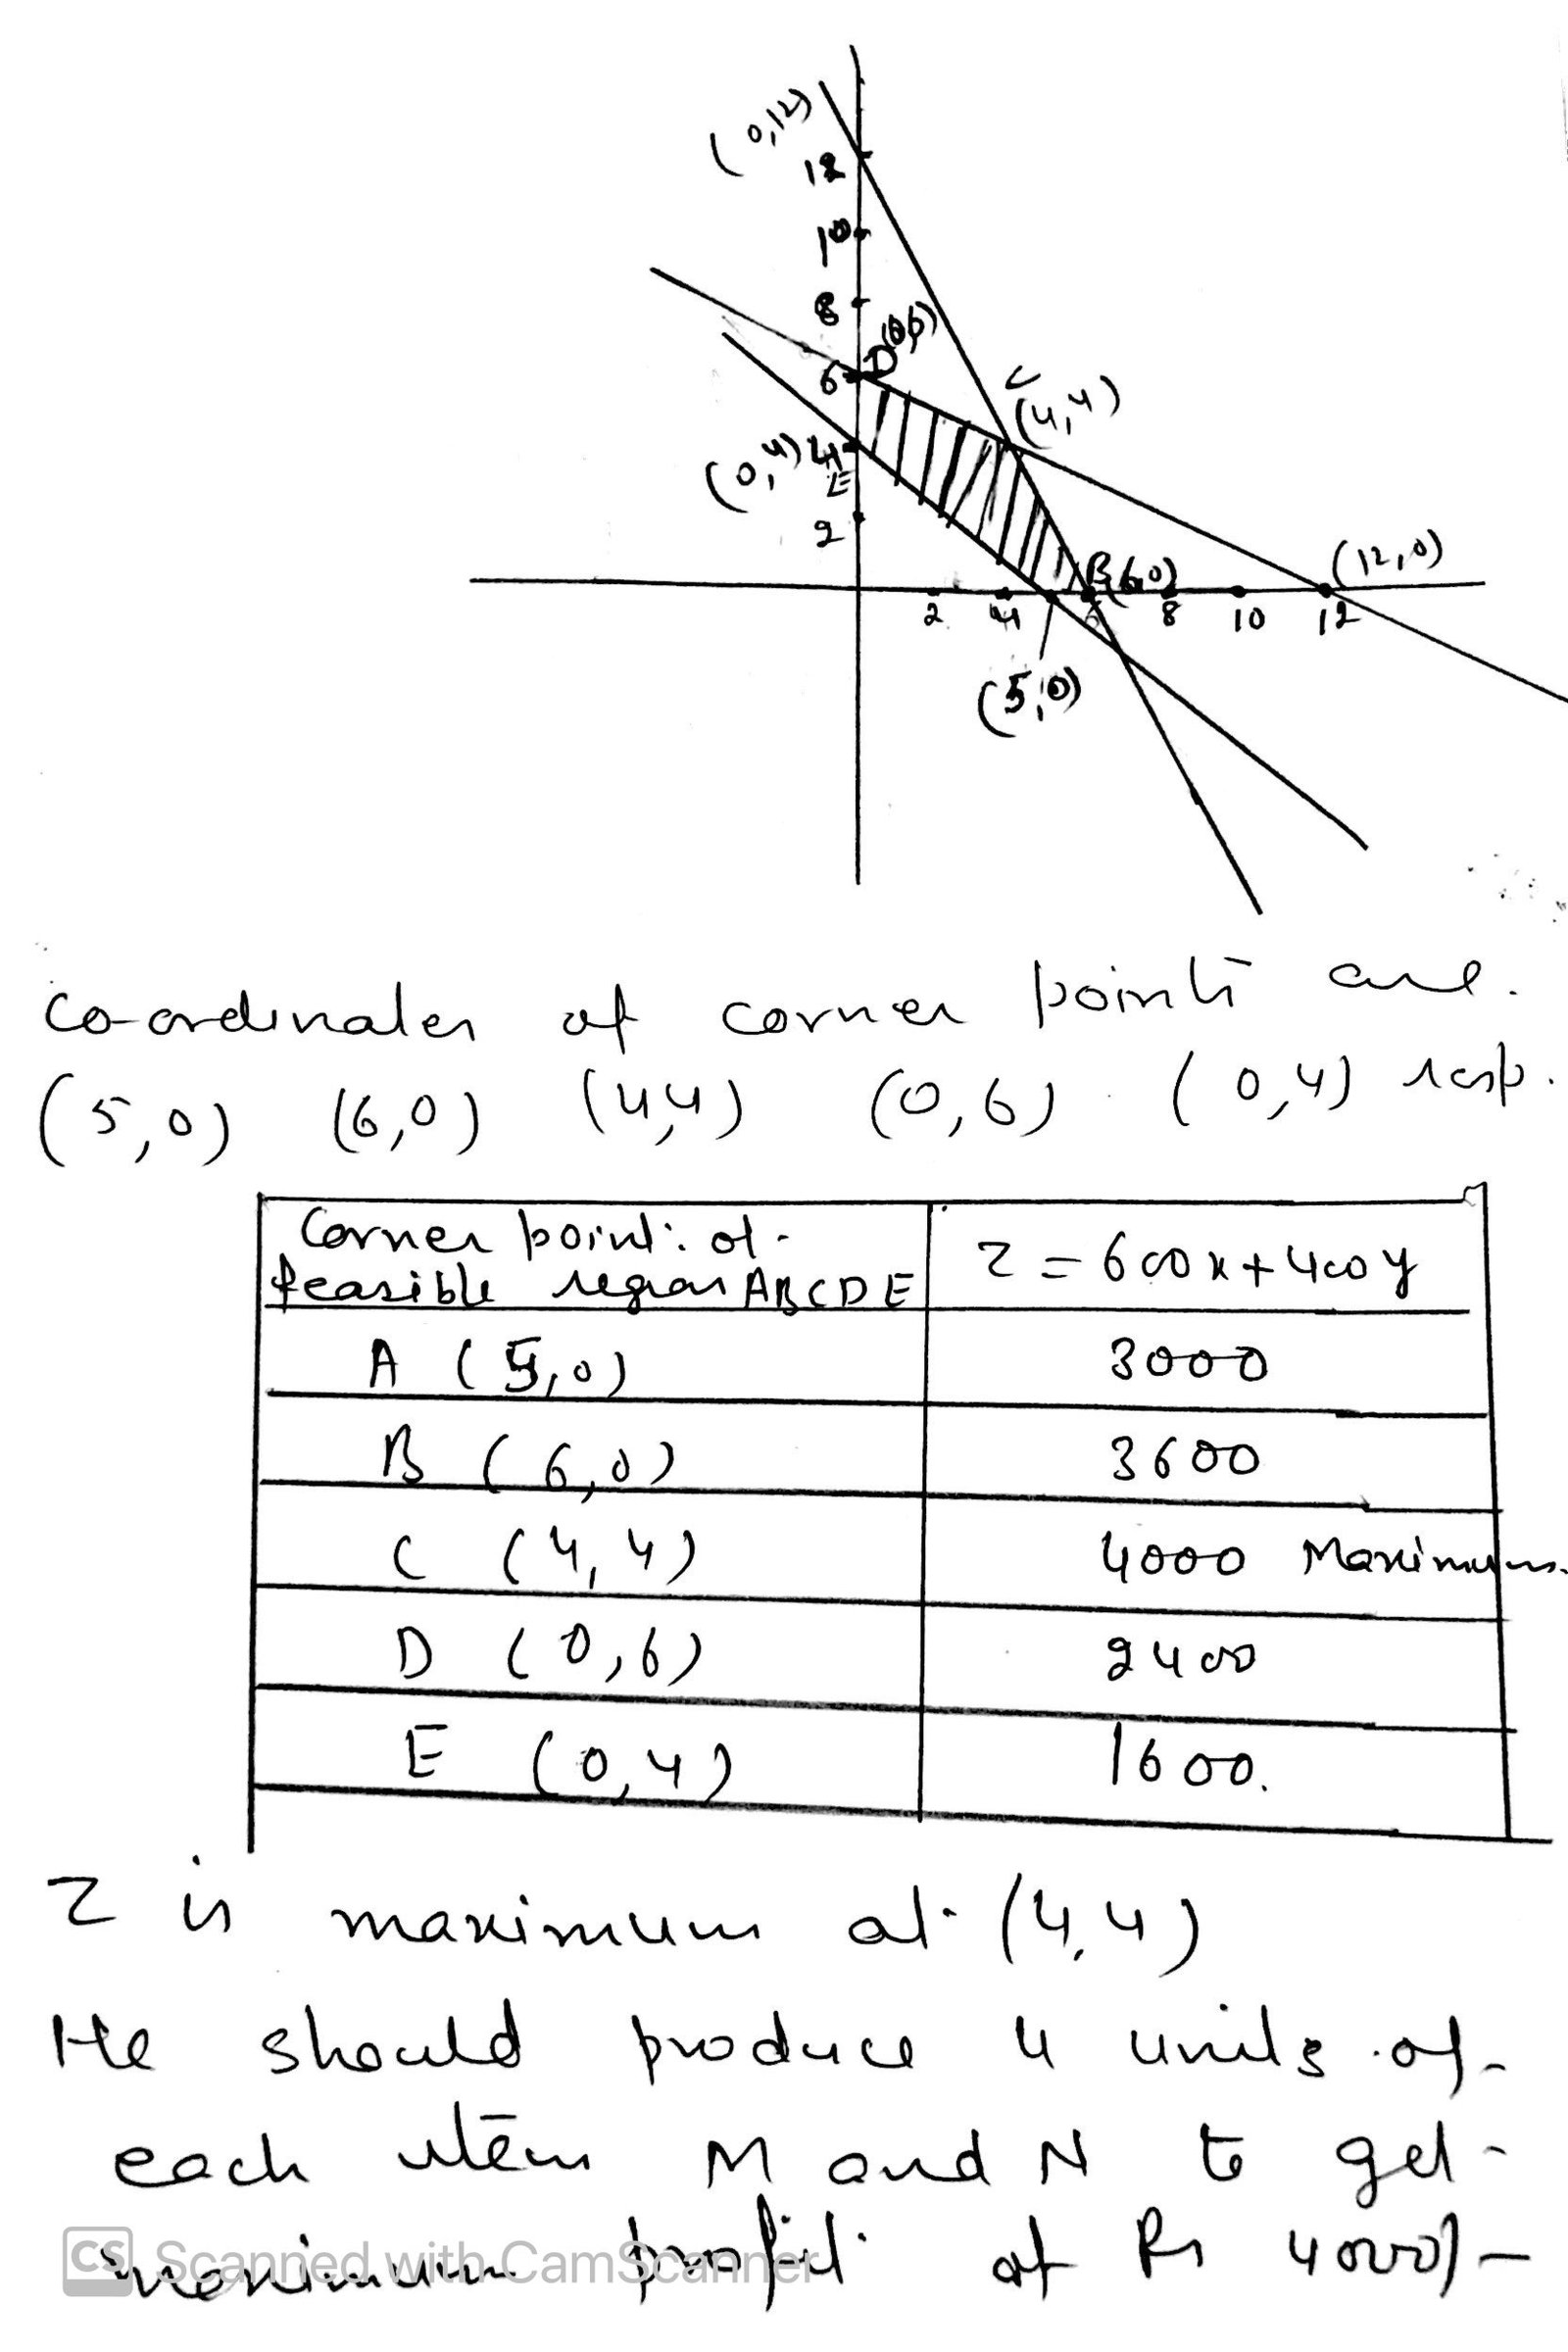 (0,12)
12
10
8
D(0,6)
6
C
(4,4)
(0,4) 4
E
2
B(6,0)
(12,0)
2 4 6 8 10 12
(5,0)
co-ordinates of corner points are.
(5,0) (6,0) (4,4) (0,6) (0,4) resp.
Corner point of
feasible region ABCDE
Z = 600x + 400y
A (5,0) 3000
B (6,0) 3600
C (4,4) 4000 Maximum.
D (0,6) 2400
E (0,4) 1600.
Z is maximum at (4,4)
He should produce 4 units of
each item M and N to get
maximum profit of Rs 4000/-
CS Scanned with CamScanner